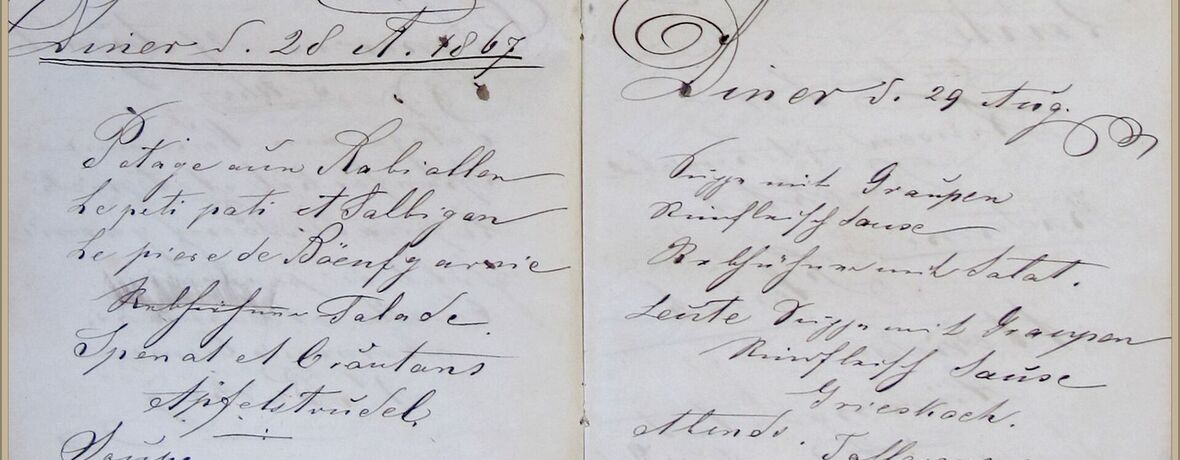 Diner d. 28 A. 1867
Potage aún Rabiollen
Le peti pati et Salbigan
Le piese de Böenf garnie
Rebhühner Salade.
Spenat et Crautans
Apfelstrudel.
Soupe
Diner d. 29 Aug.
Suppe mit Graupen
Rindfleisch Sause
Rebhühner mit Salat.
Leúte Suppe mit Graupen
Rindfleisch Sause
Grieskoch.
Abends.